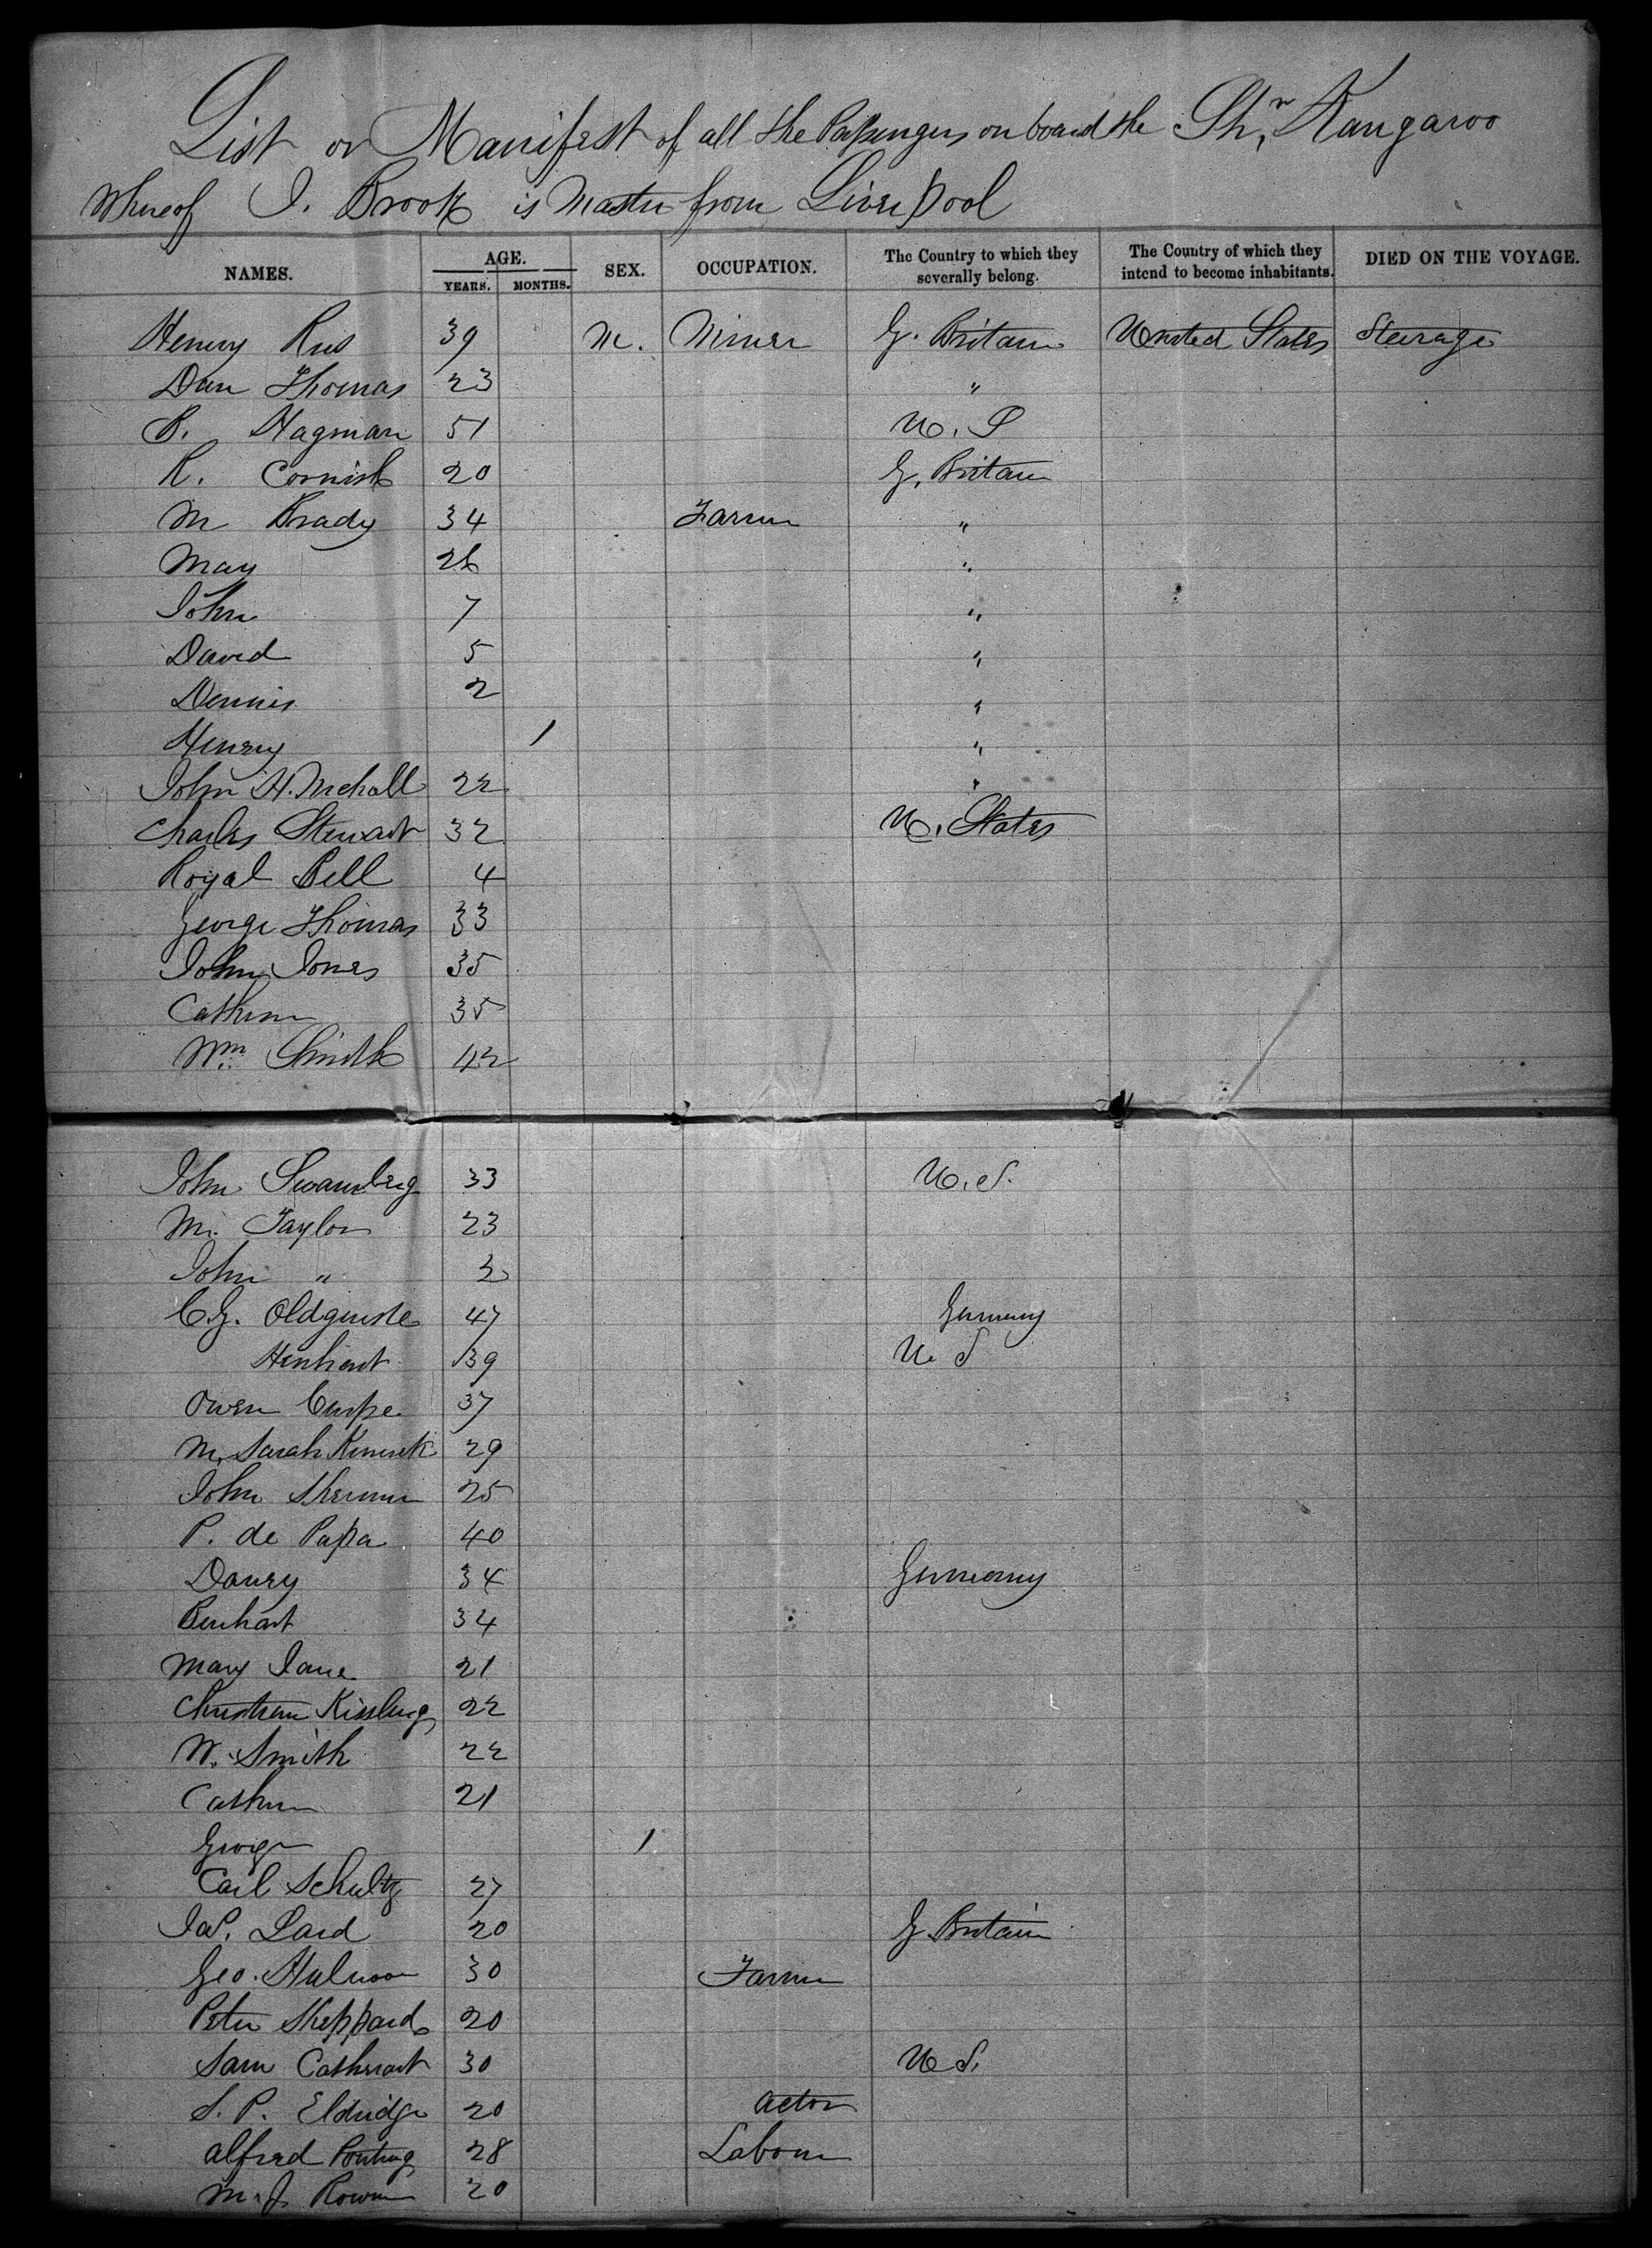 List or Manifest of all the Passengers on board the Str. Kangaroo
Whereof J. Brooks is Master from Liverpool
NAMES. AGE. YEARS. MONTHS. SEX. OCCUPATION. The Country to which they severally belong. The Country of which they intend to become inhabitants. DIED ON THE VOYAGE.
Henry Rees 39 M. Miner G. Britain United States Steerage
Dan Thomas 23 "
Hagman 51 U. S
R. Cornish 20 G. Britain
M Brady 34 Farmer "
Mary 26 "
John 7 "
David 5 "
Dennis 2 "
Henry 1 "
John H. Nicholl 22 "
Charles Stewart 32 U. States
Royal Bell 4
George Thomas 33
John Jones 35
Catherine 35
Wm Smith 42
John Swanberg 33 U. S.
M. Taylor 23
John " 3
C. G. 47 Germany
39 U. S
Owen 37
M. Sarah 29
John Sherman 25
P. de Papa 40
34 Germany
34
Mary Jane 21
Christian Kissling 22
W. Smith 22
Catherine 21
George 1
Carl Schultz 27
Jas. 20 G. Britain
Geo. 30 Farmer
Peter Sheppard 20
Sam Cathcart 30 U S.
S. P. Eldridge 20 Actor
Alfred Ponting 28 Labour
M. J. Rowan 20